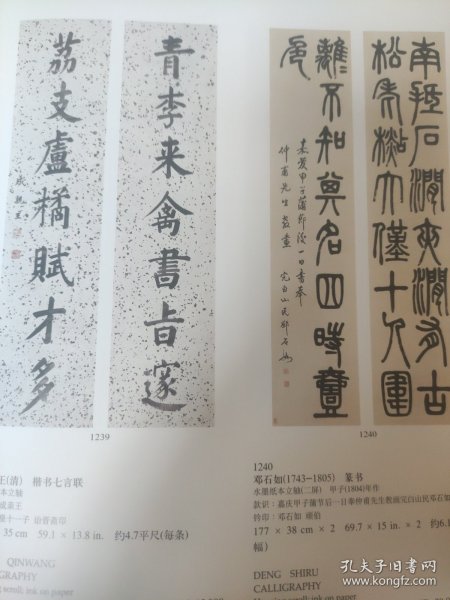 青李来禽書旨邃
荔支盧橘賦才多
成親王
南抵石澗夾澗有古
松老杉大僅十人圍
離〻不知其名四時壹
色
嘉慶甲子蒲節後一日書奉
仲甫先生教畫
完白山民鄧石如
1239
1240
王(清) 楷书七言联
纸本立轴
成亲王
皇十一子 诒晋斋印
35 cm 59.1 × 13.8 in. 约4.7平尺(每条)
QINWANG
GRAPHY
scroll; ink on paper
1240
邓石如(1743-1805) 篆书
水墨纸本立轴(二屏) 甲子(1804)年作
款识:嘉庆甲子蒲节后一日奉仲甫先生教画完白山民邓石如
钤印:邓石如 顽伯
177 × 38 cm × 2 69.7 × 15 in. × 2 约6.
幅)
DENG SHIRU
CALLIGRAPHY
孔夫子旧书网
kongfz.com